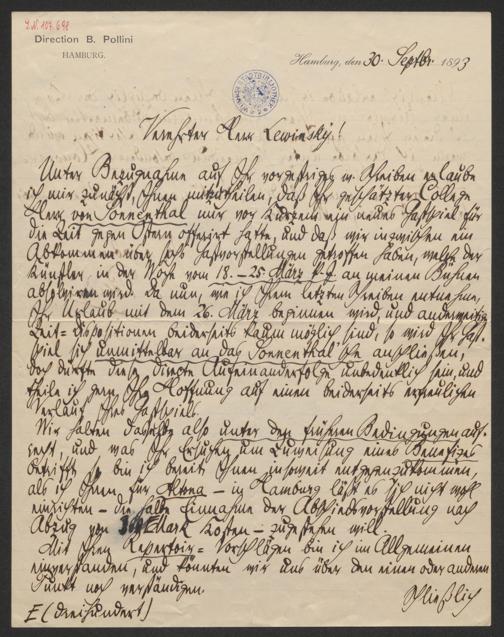 J.N. 107.698
Direction B. Pollini
HAMBURG.
Hamburg, den 30. Septbr. 1893
Verehrter Herr Lewinsky!
Unter Bezugnahme auf Ihr vorgestriges w. Schreiben erlaube
ich mir zunächst, Ihnen mitzutheilen, daß Ihr geschätzter College
Herr von Sonnenthal mir vor Kurzem ein neues Gastspiel für
die Zeit gegen Ostern offerirt hatte, und daß wir inzwischen ein
Abkommen über sechs Gastvorstellungen getroffen haben, welche der
Künstler in der Woche vom 18.–25. März an meinen Bühnen
absolviren wird. Da nun, wie ich Ihrem letzten Schreiben entnehme,
Ihr Urlaub mit dem 26. März beginnen wird, und anderweitige
Zeit=dispositionen beiderseits kaum möglich sind, so wird Ihr Gast-
spiel sich unmittelbar an das Sonnenthal'sche anschließen,
doch dürfte diese directe Aufeinanderfolge unbedenklich sein, und
theile ich gern Ihre Hoffnung auf einen beiderseits erfreulichen
Verlauf Ihres Gastspiels.
Wir halten dasselbe also unter den früheren Bedingungen auf-
recht, und was Ihr Ersuchen um Zuweisung eines Benefizes
betrifft, so bin ich bereit Ihnen insoweit entgegenzukommen,
als ich Ihnen für Altona – in Hamburg läßt es sich nicht wohl
einrichten – die halbe Einnahme der Abschiedsvorstellung nach
Abzug von Mark Kosten – zugestehen will.
Mit Ihren Repertoir=Vorschlägen bin ich im Allgemeinen
einverstanden, und könnten wir uns über den einen oder anderen
Punkt noch verständigen.
Schließlich
(dreihundert)